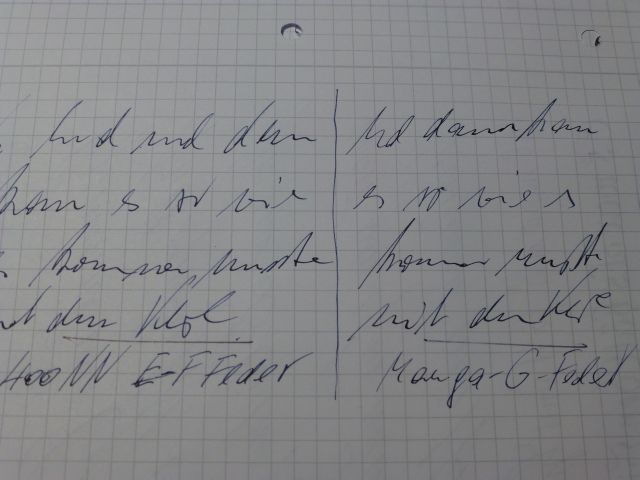 und dann
kam es so wie
kommen musste
dem
400NN E-F Feder
Und dann kam
es so wie s
kommen musste
mit dem
Manga-G-Feder